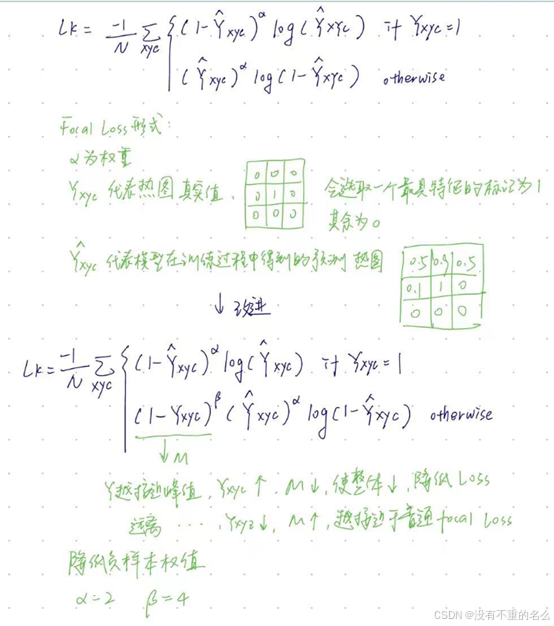 Lk = -1/N Σxyc { (1-Ŷxyc)^α log(Ŷxyc) if Yxyc=1
(Ŷxyc)^α log(1-Ŷxyc) otherwise
Focal Loss 形式:
α为权重
Yxyc 代表热图真实值.
0 0 0
0 1 0
0 0 0
会选取一个最具特征的标记为1
其余为0
Ŷxyc 代表模型在训练过程中得到的预测热图
0.5 0.9 0.5
0.1 1 0
0 0 0
↓ 改进
Lk = -1/N Σxyc { (1-Ŷxyc)^α log(Ŷxyc) if Yxyc=1
(1-Yxyc)^β (Ŷxyc)^α log(1-Ŷxyc) otherwise
↓ M
Y越接近峰值, Yxyc↑, M↓, 使整体↓, 降低Loss
远离 ···, Yxyc↓, M↑, 越接近于普通focal Loss
降低负样本权值
α=2 β=4
CSDN @没有不重的名么